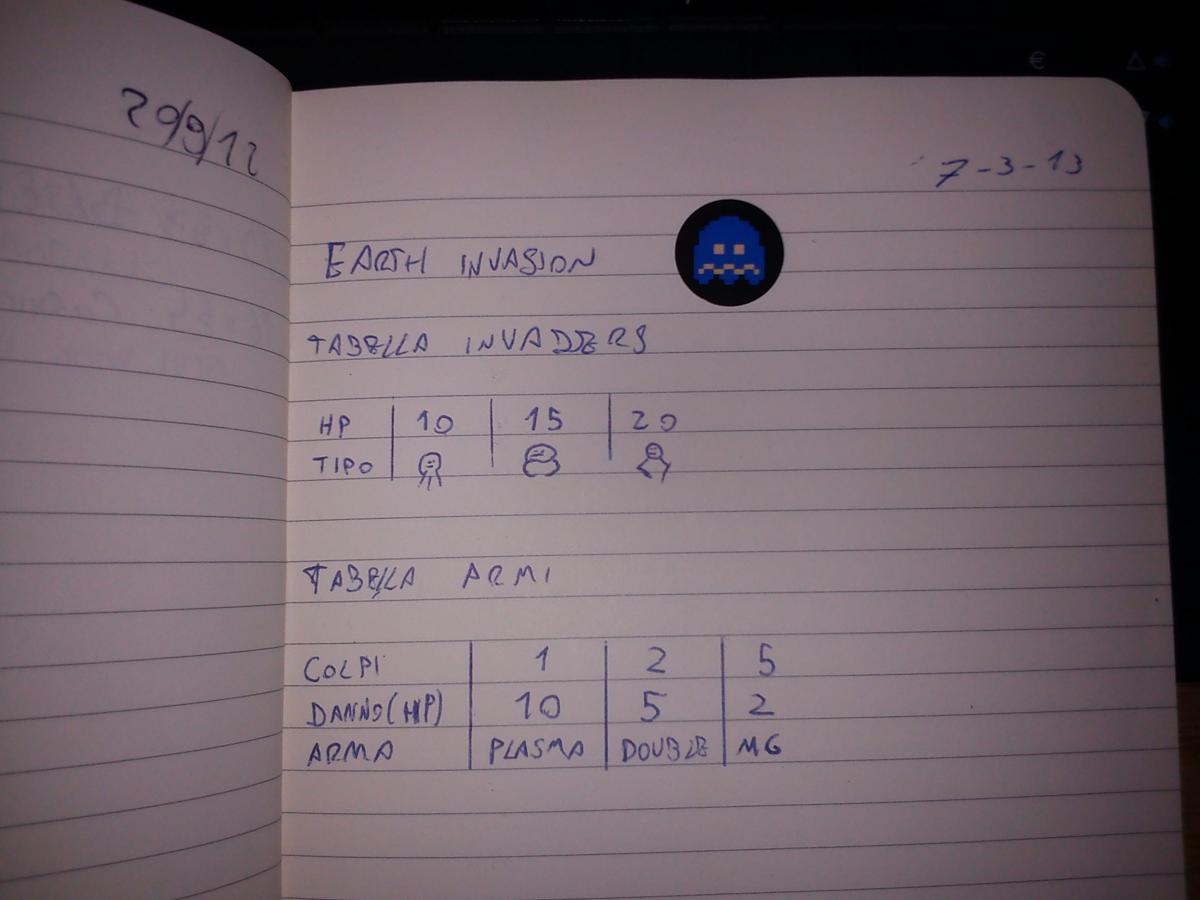 29/9/12
7-3-13
EARTH INVASION
TABELLA INVADERS
HP 10 15 20
TIPO
TABELLA ARMI
COLPI 1 2 5
DANNO(HP) 10 5 2
ARMA PLASMA DOUBLE MG